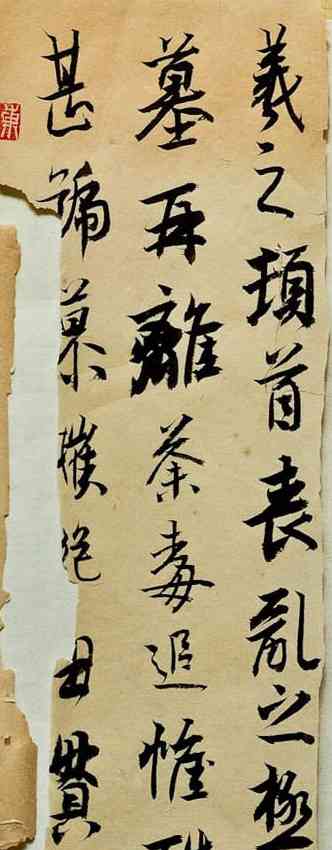 羲之頓首喪亂之極
墓再離荼毒追惟
甚號慕摧絕 貫